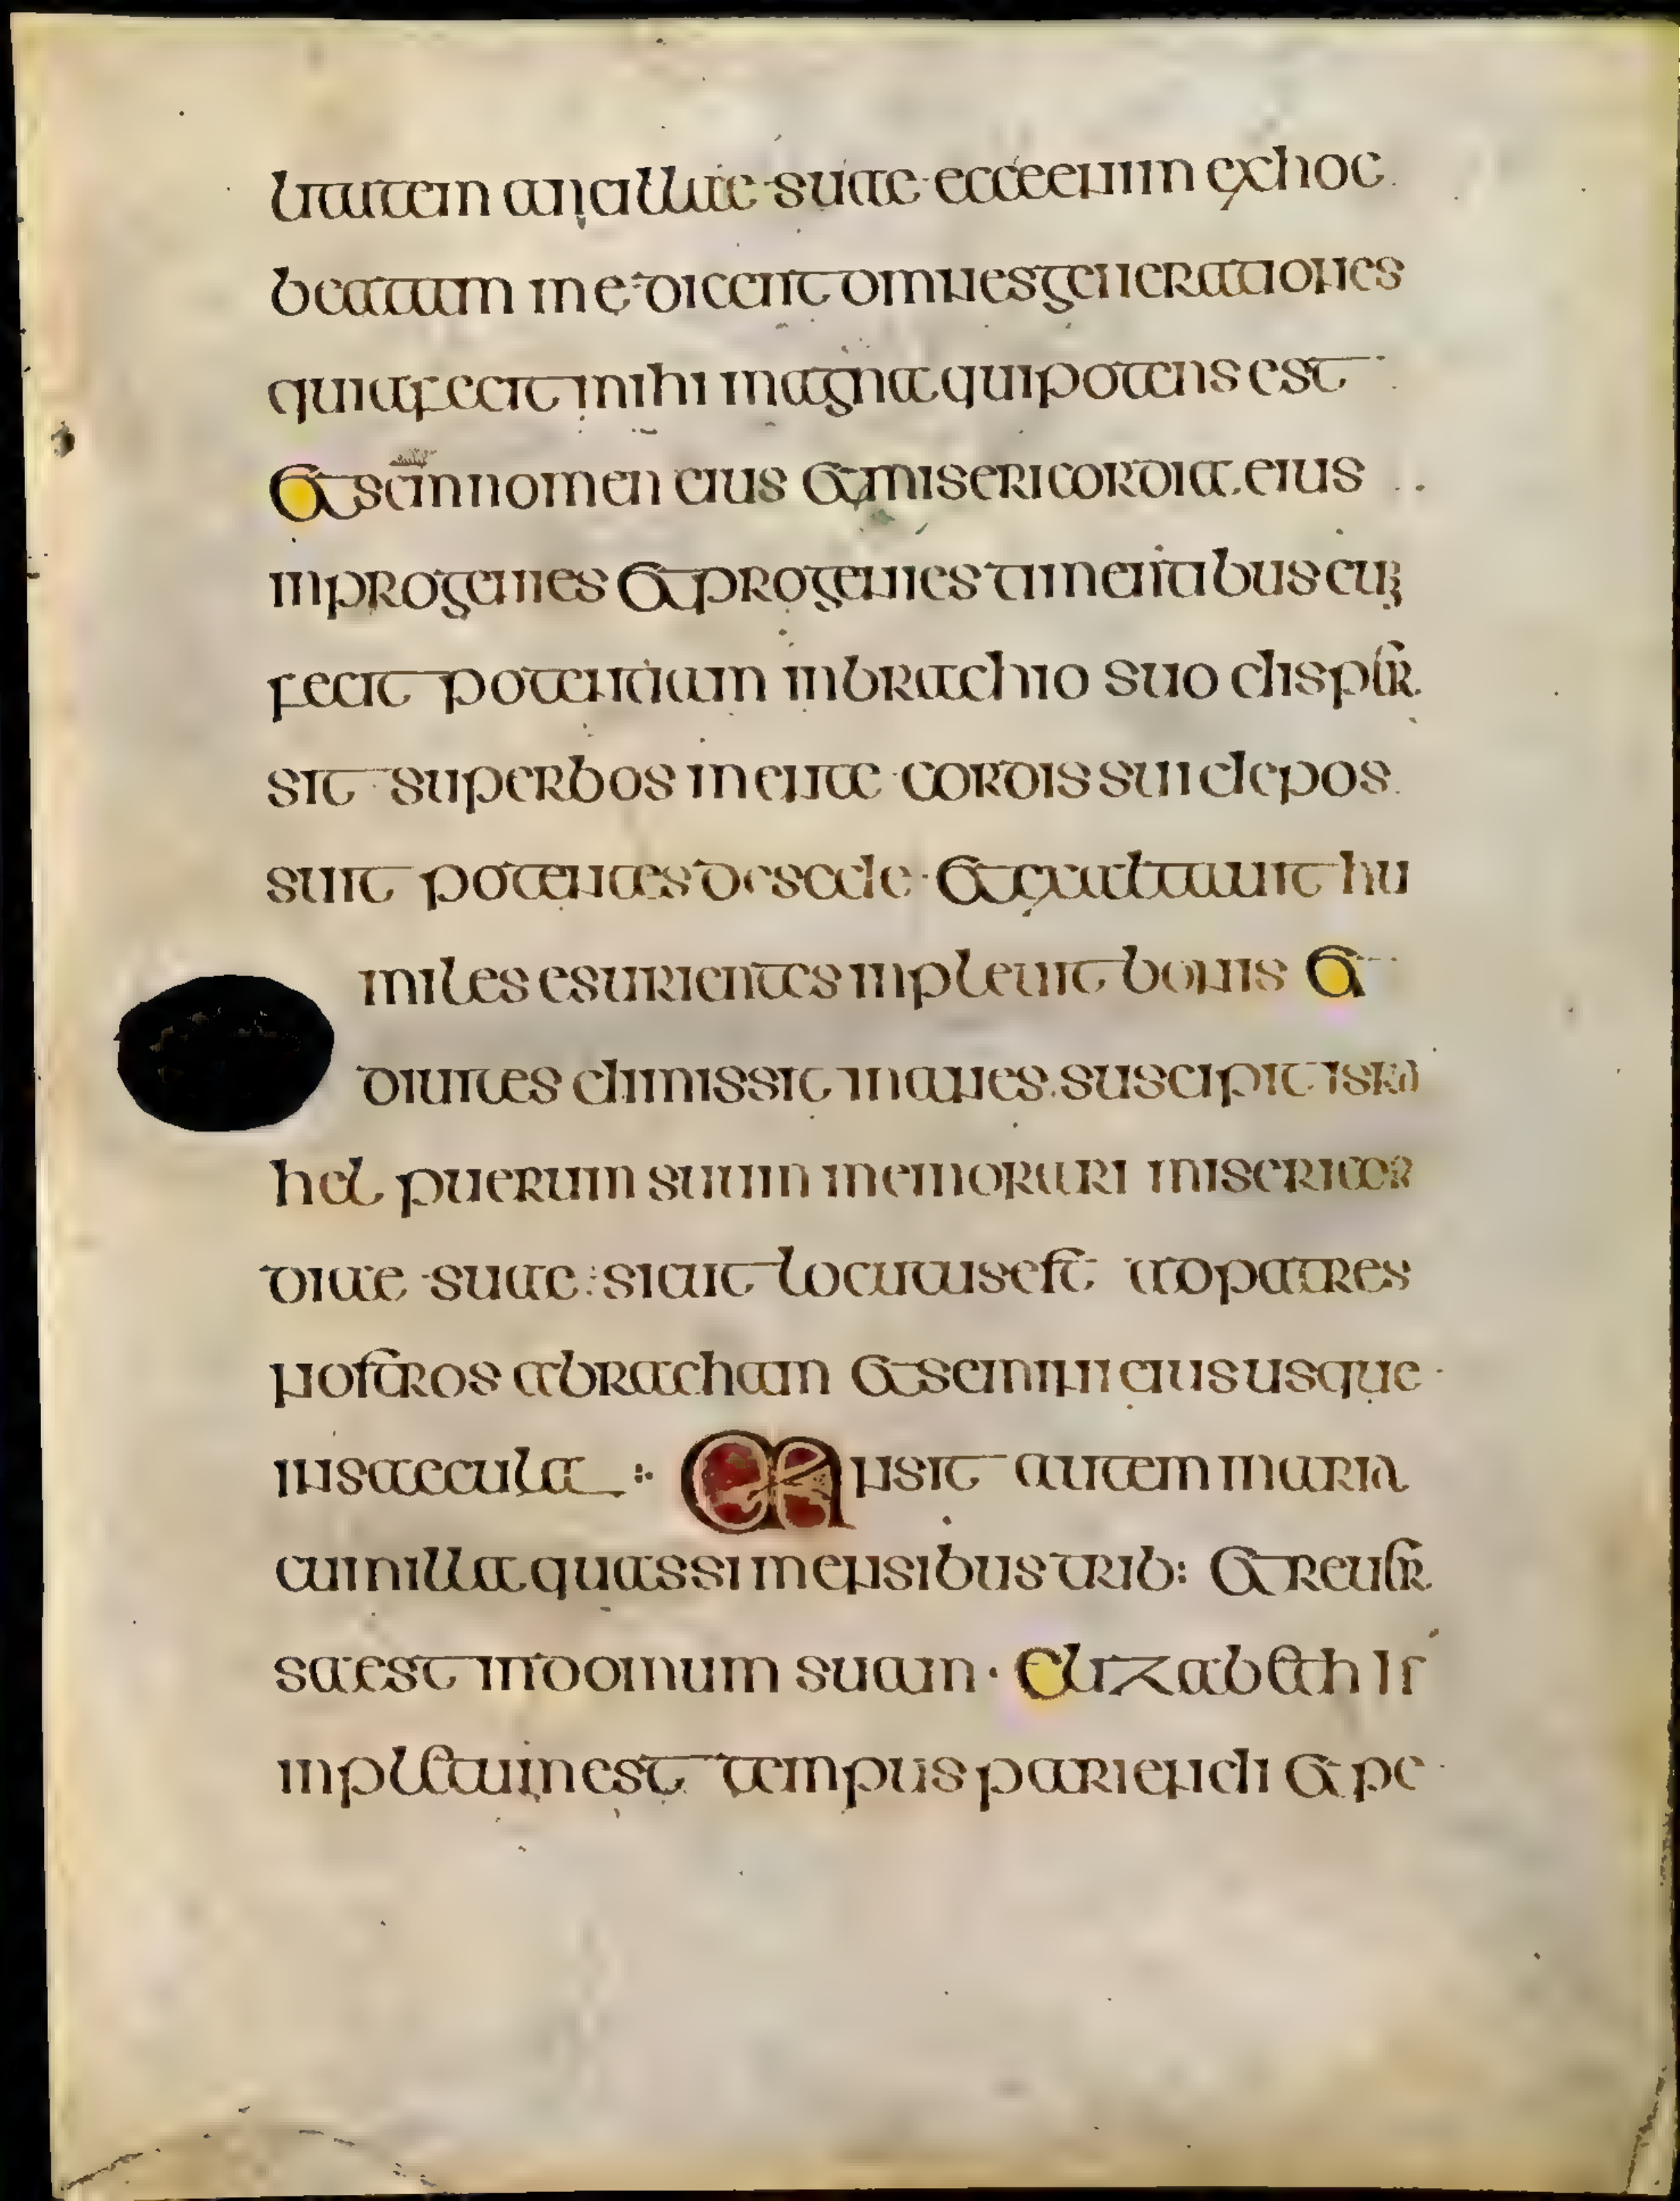 litatem ancillae suae ecceenim exhoc
beatam me dicent omnesgenerationes
quiafecit mihi magna quipotens est
& scm nomen eius & misericordia eius
inprogenies & progenies timentibus eum
fecit potentiam inbrachio suo disper
sit superbos mente cordis sui depos
suit potentes desede & exaltauit hu
miles esurientes inpleuit bonis &
diuites dimissit inanes suscipit isra
hel puerum suum memorari misericor
diae suae sicut locutusest adpatres
nostros abracham & semini eius usque
insaecula :· Mansit autem maria
cum illa quassi mensibus trib: & reuer
sa est indomum suam · Elizabeth
inpletum est tempus pariendi & pe